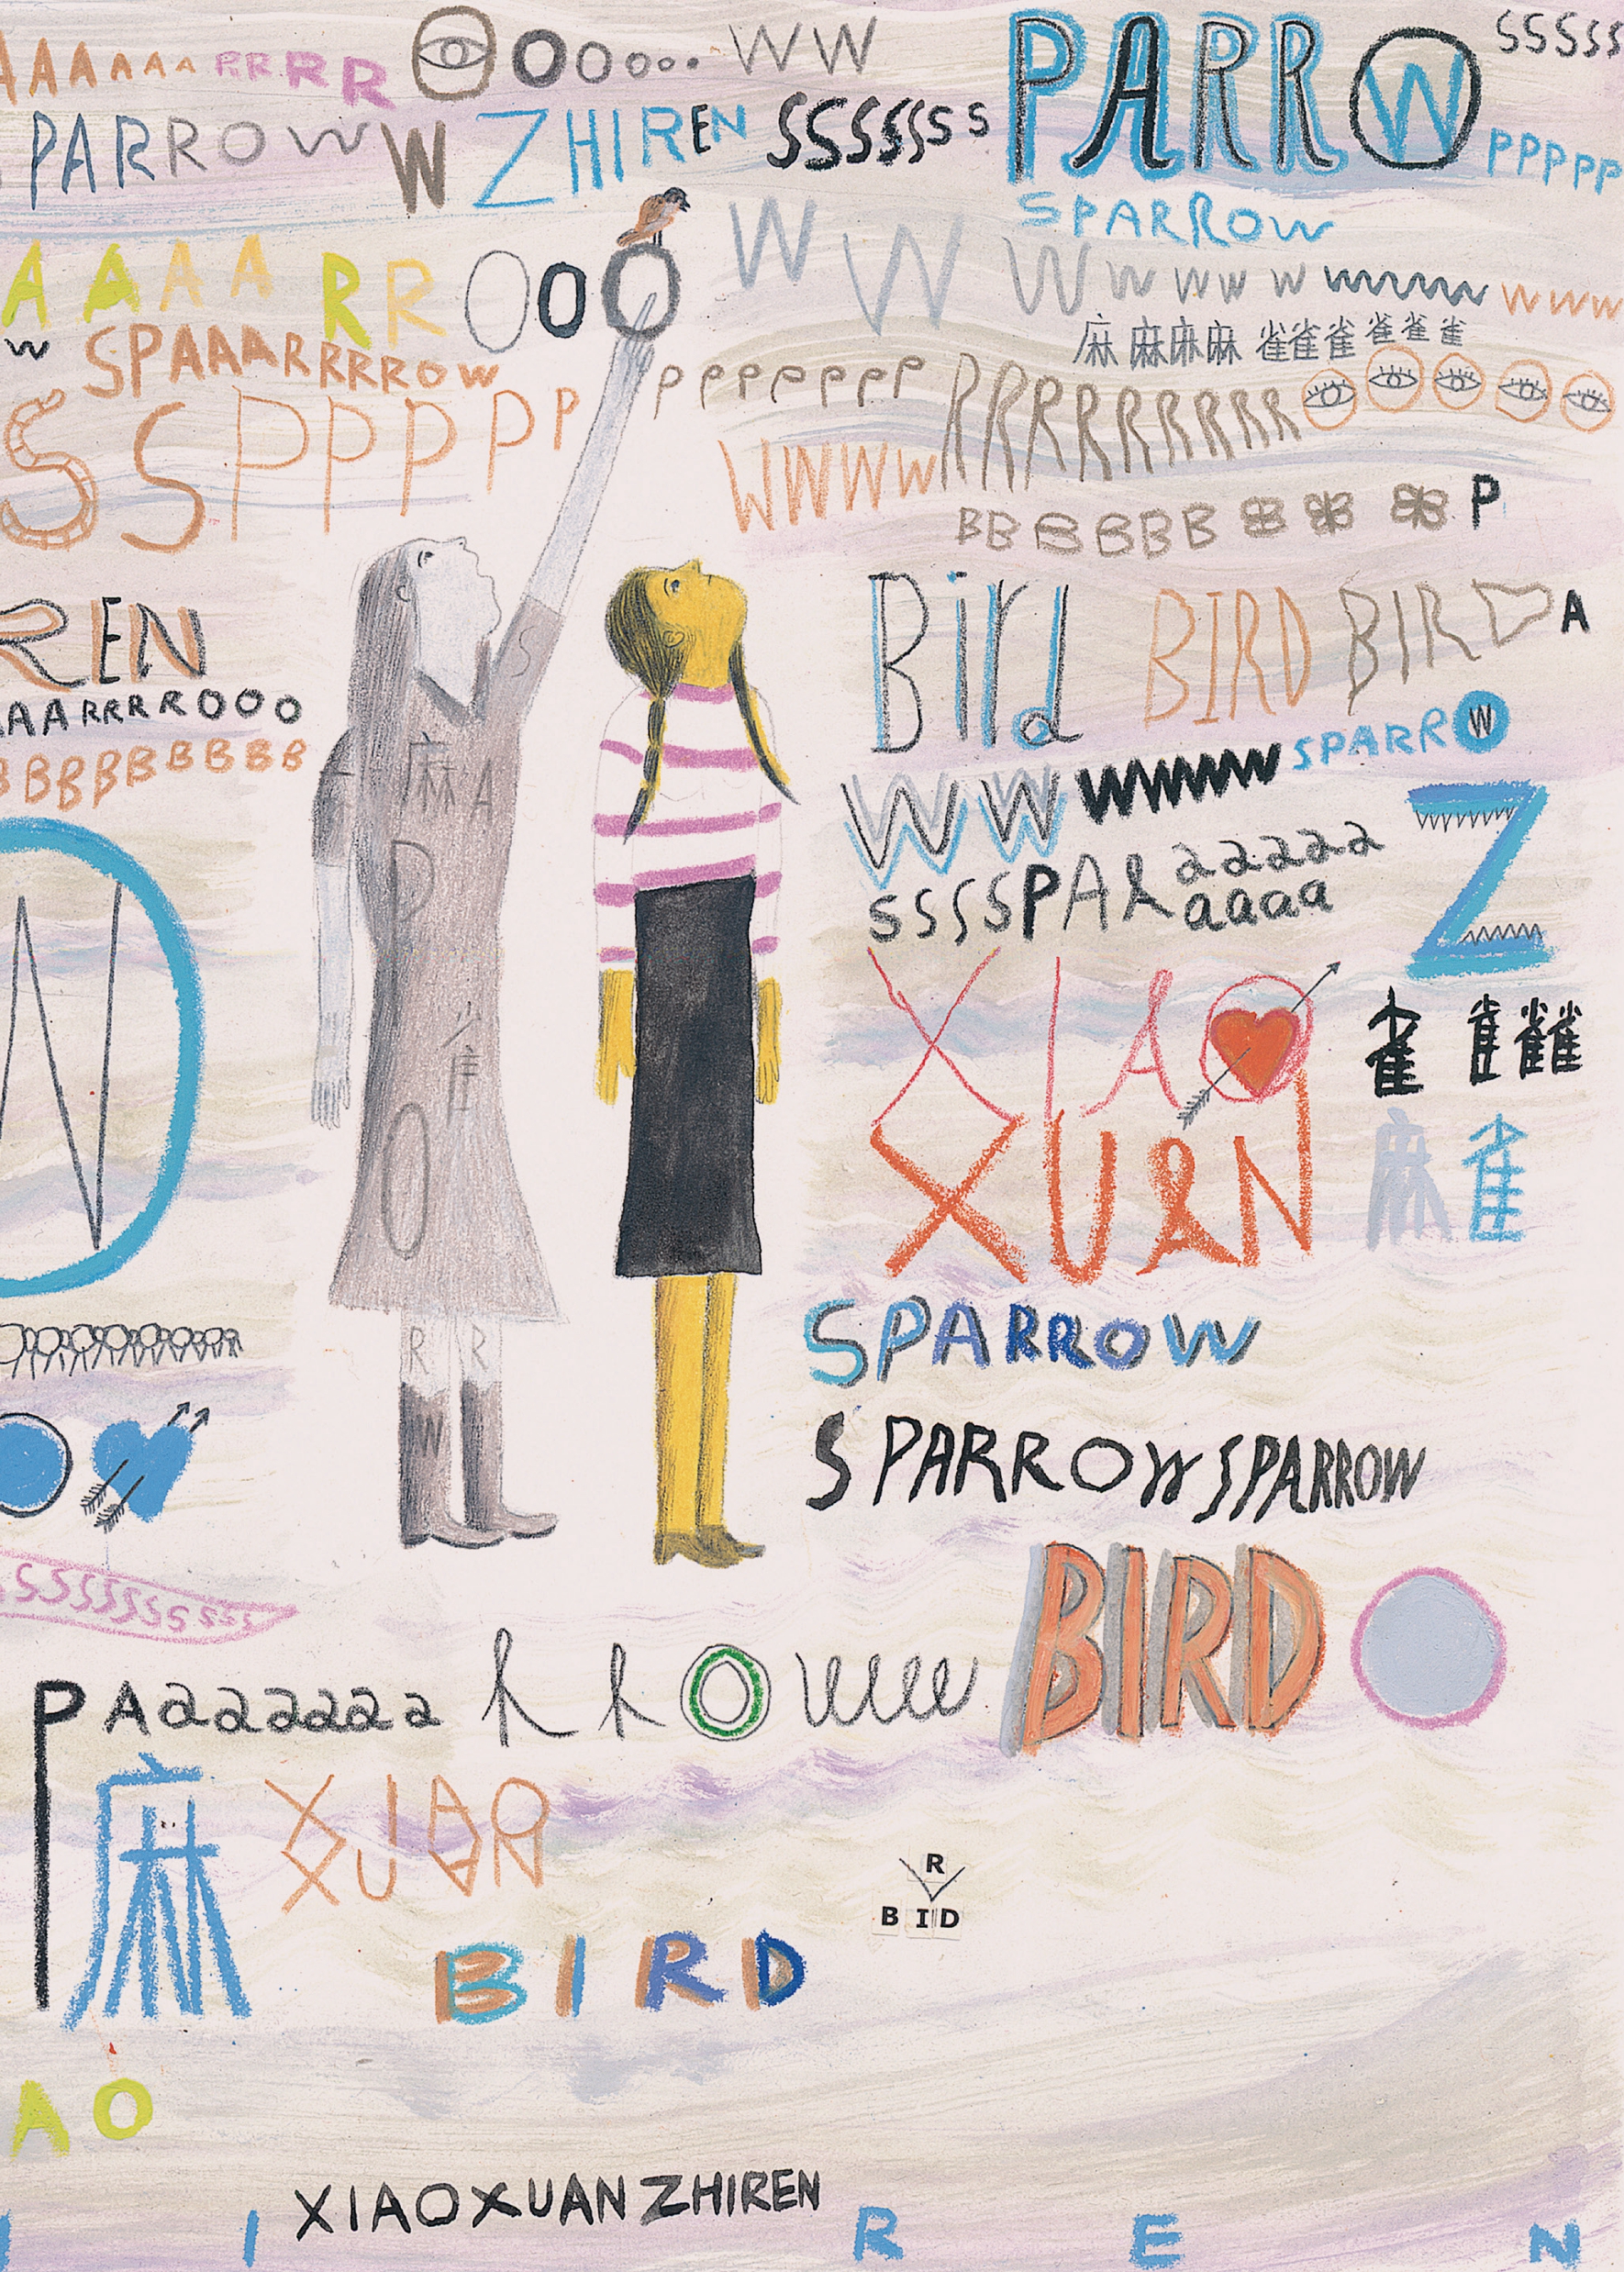 AAAAAAA RRRR OOooo. WW
PARR W
SSSSS
PARROW W ZHIREN SSSSSSSS
PPPPP
SPARROW
AAAA RR OOO WWWWWWW wwwww WWW
W SPAAARRRROW
麻麻麻麻 雀雀雀雀雀雀
SSPPPPP PPPPPPPP RRRRRRRRR
WWWW
BBBBBB P
REN
Bird BIRD BIRD A
AARRRROOO
BBBBBBBBB
S
麻 A
P
雀
O
R R
W
SPARROW
WW WWWW
Z
SSSSPAR aaaaa
aaaa
XIAO
XUAN
雀 雀雀雀
麻 雀
W
SPARROW
SPARROW SPARROW
SSSSSSSSSSS
BIRD
P Aaaaaaaa rrow
麻
XIAO
XUAN
R
BID
BIRD
AO
XIAOXUANZHIREN
I R E N